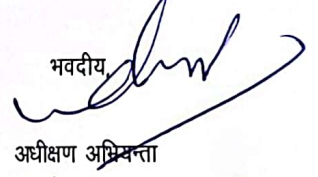 भवदीय,
अधीक्षण अभियन्ता